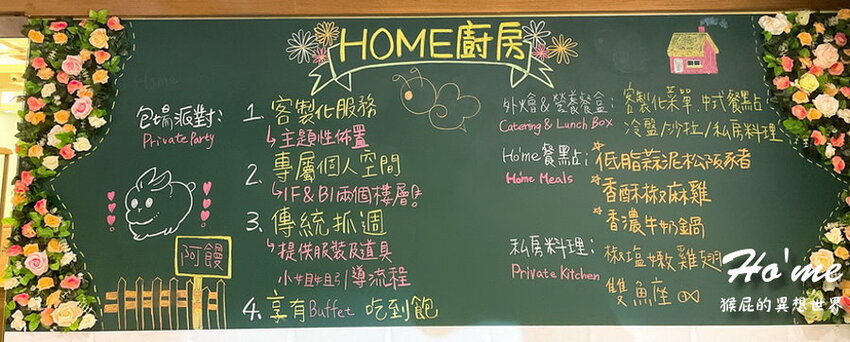 HOME廚房
Home
包場派對:
Private Party
1. 客製化服務
↳主題性佈置
2. 專屬個人空間
↳1F&B1兩個樓層!
3. 傳統抓週
↳提供服裝及道具
小姐姐引導流程
4. 享有Buffet 吃到飽
阿饅
外燴&營養餐盒:
Catering & Lunch Box
客製化菜單,中式餐點
冷盤/沙拉/私房料理
Ho'me餐點:
Ho'me Meals
*低脂蒜泥松阪豬
*香酥椒麻雞
*香濃牛奶鍋
私房料理:
Private Kitchen
椒塩嫩雞翅
雙魚座
Ho'me
Ho'me
猴屁的異想世界